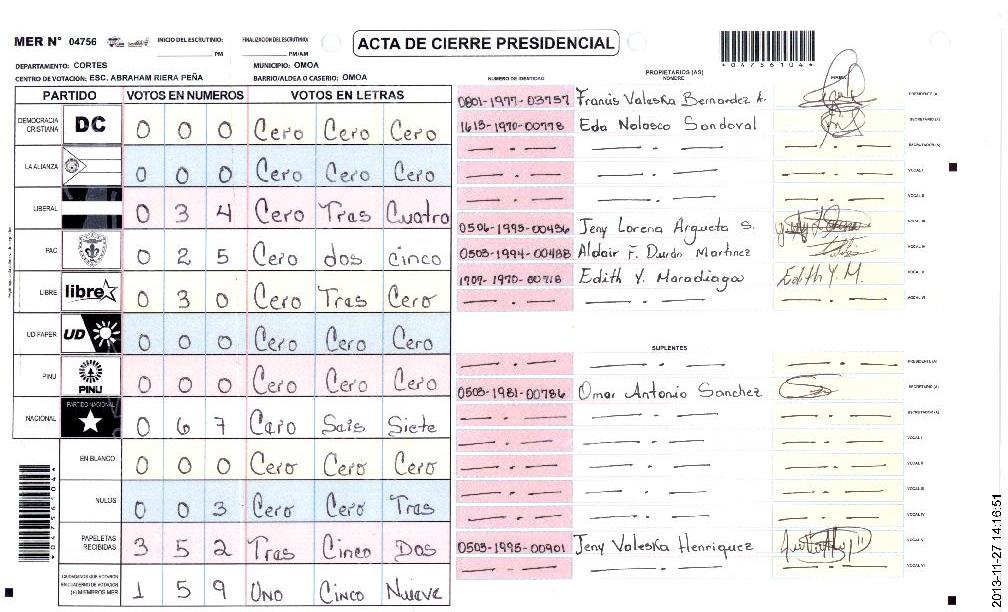 MER N° 04756 INICIO DEL ESCRUTINIO: PM FINALIZACION DEL ESCRUTINIO: PM/AM
ACTA DE CIERRE PRESIDENCIAL
*04756104*
DEPARTAMENTO: CORTES MUNICIPIO: OMOA
CENTRO DE VOTACION: ESC. ABRAHAM RIERA PEÑA BARRIO/ALDEA O CASERIO: OMOA
PARTIDO VOTOS EN NUMEROS VOTOS EN LETRAS
DEMOCRACIA CRISTIANA DC 0 0 0 Cero Cero Cero
LA ALIANZA 0 0 0 Cero Cero Cero
LIBERAL 0 3 4 Cero Tras Cuatro
PAC 0 2 5 Cero dos cinco
LIBRE libre 0 3 0 Cero Tras Cero
UD-FAPER UD 0 0 0 Cero Cero Cero
PINU PINU 0 0 0 Cero Cero Cero
NACIONAL PARTIDO NACIONAL 0 6 7 Caro Sais Siete
EN BLANCO 0 0 0 Cero Cero Cero
NULOS 0 0 3 Cero Cero Tras
PAPELETAS RECIBIDAS 3 5 2 Tras Cinco Dos
CIUDADANOS QUE VOTARON EN CUADERNO DE VOTACION (+) MIEMBROS MER 1 5 9 Uno Cinco Nueve
*04756104*
PROPIETARIOS (AS)
NUMERO DE IDENTIDAD NOMBRE FIRMA
0801-1977-03757 Francis Valeska Bernardez A. PRESIDENTE (A)
1613-1970-00778 Eda Nolasco Sandoval SECRETARIO (A)
ESCRUTADOR (A)
VOCAL I
VOCAL II
0506-1993-00436 Jeny Lorena Argueta S. VOCAL III
0503-1994-00488 Aldair F. Durón Martinez VOCAL IV
1707-1970-00718 Edith Y. Maradiaga Edith Y M. VOCAL V
VOCAL VI
SUPLENTES
PRESIDENTE (A)
0503-1981-00786 Omar Antonio Sanchez SECRETARIO (A)
ESCRUTADOR (A)
VOCAL I
VOCAL II
VOCAL III
VOCAL IV
0503-1995-00901 Jeny Valeska Henriquez VOCAL V
VOCAL VI
2013-11-27 14:16:51